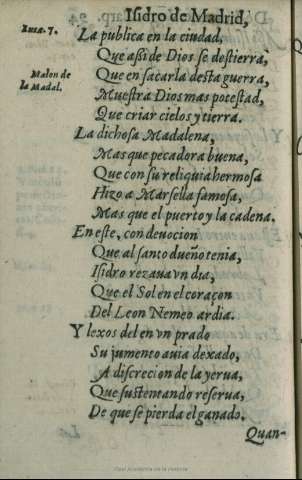 Isidro de Madrid,
Luca. 7.
La publica en la ciudad,
Que assi de Dios se destierra,
Malon de
la Madal.
Que en sacarla desta guerra,
Muestra Dios mas potestad,
Que criar cielos y tierra.
La dichosa Madalena,
Mas que pecadora buena,
Que con su reliquia hermosa
Hizo a Marsella famosa,
Mas que el puerto y la cadena.
En este, con deuocion
Que al santo dueño tenia,
Isidro rezaua vn dia,
Que el Sol en el coraçon
Del Leon Nemeo ardia.
Y lexos del en vn prado
Su jumento auia dexado,
A discrecion de la yerua,
Que sustentando reserua,
De que se pierda el ganado.
Quan-
Real Academia de la Historia